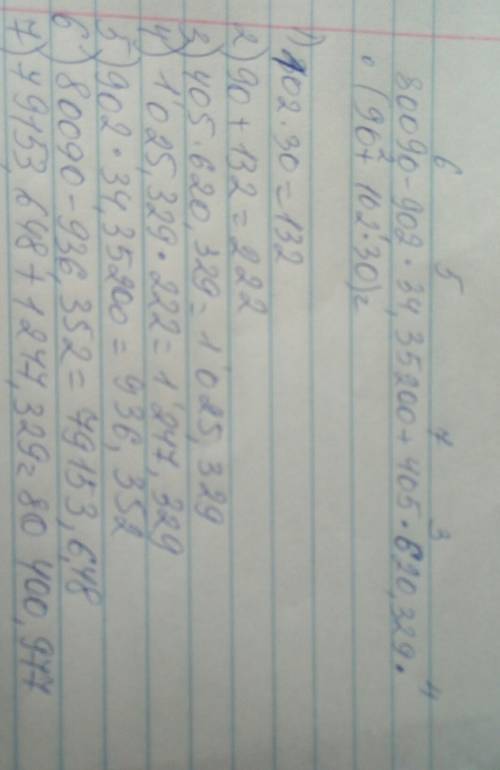 6 5 7 3 4
80090-902·34,35200+405·620,329·
2 1
·(90+102·30)=
1) 102·30=132
2) 90+132=222
3) 405·620,329=1'025,329
4) 1'025,329·222=1'247,329
5) 902·34,35200=936,352
6) 80090-936,352=79153,648
7) 79153,648+1247,329=80400,977